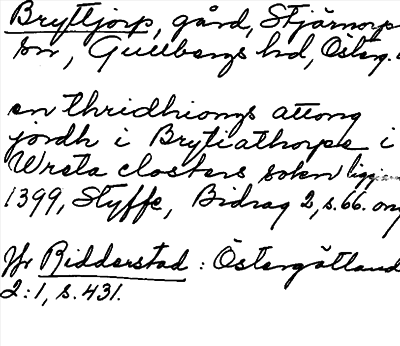 Bryttjorp, gård, Stjärnorp
sn, Gullbergs hd, Österg.
en thridhiongs attong
jordh i Brytiathorpe i
Wreta closters sokn ligg
1399, Styffe, Bidrag 2, s. 66.
Jfr Ridderstad: Östergötland
2:1, s. 431.